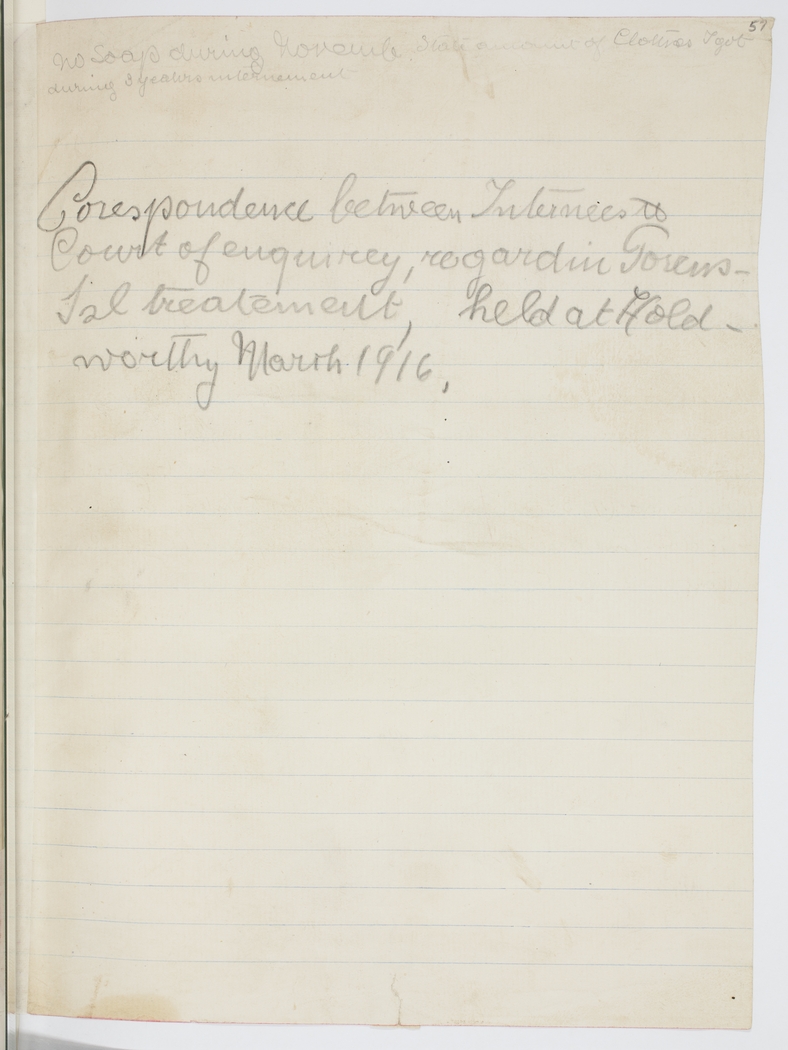 57
no Soap during Novembe. State amount of Clothes I got
during 3 yeahrs internement
Corespondence between Internees to
Court of enquirey, regardin Torens-
Isl treatement, held at Hold-
worthy March 1916,